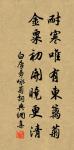 耐寒唯有東籬菊
金粟初開曉更清
白居易詠菊詩
```